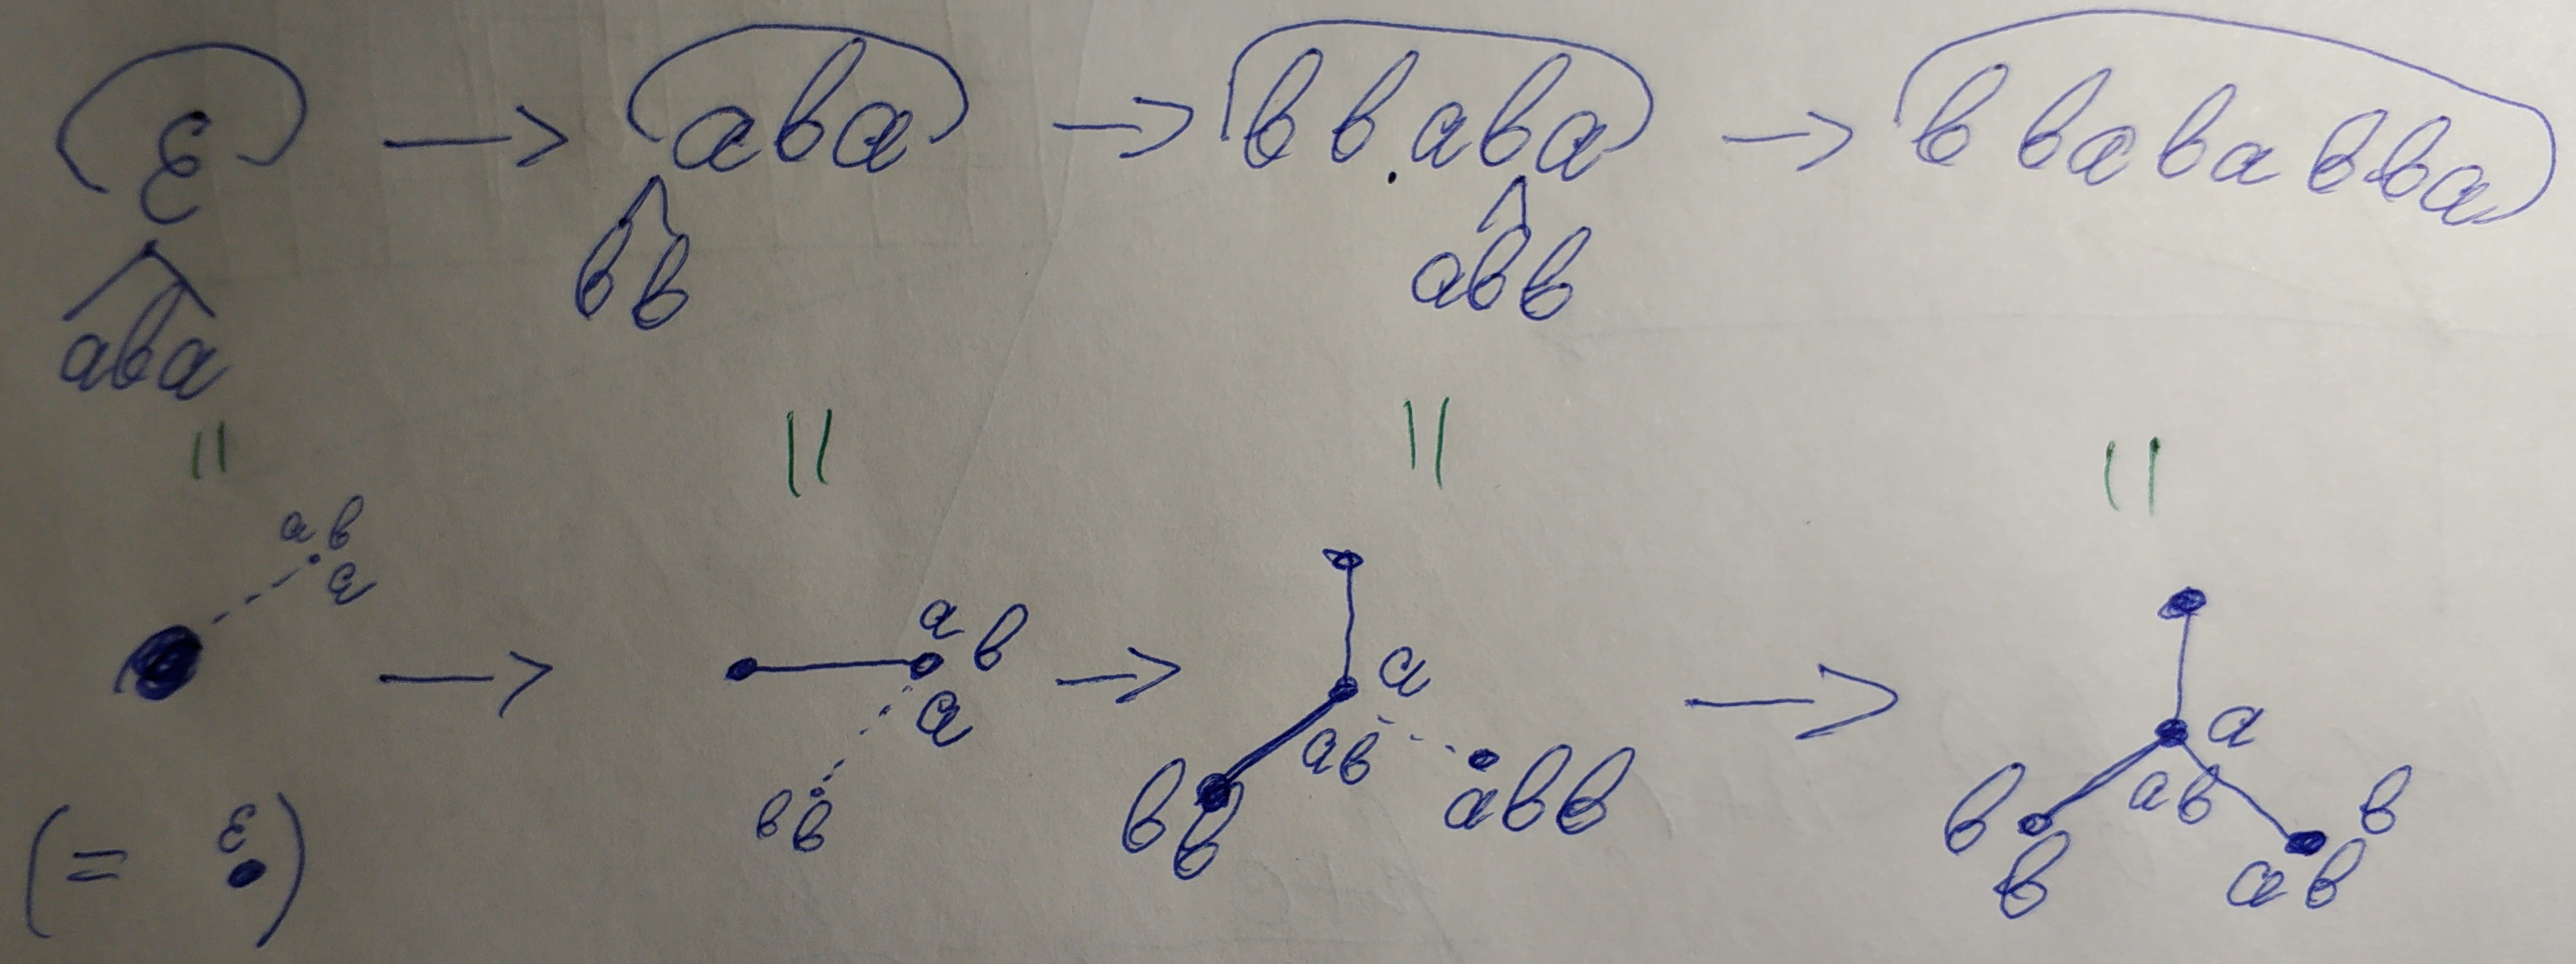 (ε) → (aba) → (bb.aba) → (bbababba)
aba bb abb
|| || || ||
a b
a
→ a b → a → a
a ab ab
b b b b abb b b b
a b
(= ε •)